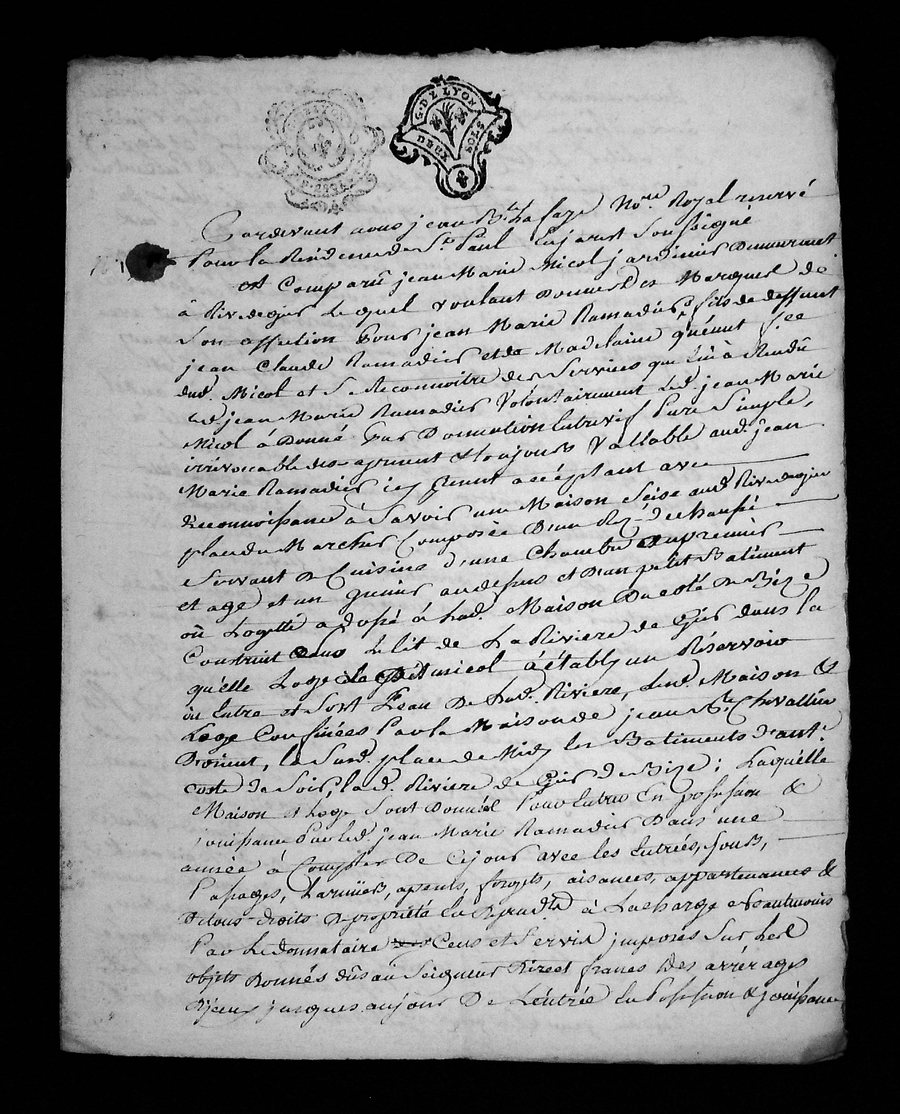 G. DE LYON
DEUX SOLS
Pardevant nous jean B.te La faye No.re Royal reservé
Pour la Residence de St. Paul En jarest Soussigné
A Comparû jean Marie Nicol jardinier Demeurant
à Rivedegier Lequel voulant Donner des Marques de
Son affection Pour jean Marie Ramadier fils de deffunt
jean Claude Ramadier et de Madelaine
dud. Nicol et Se Reconnoitre des Services que Lui à Rendû
led. jean Marie Ramadier Volontairement Led. jean Marie
Nicol à Donné Par Donnation Entrevif Pure Simple,
irrevocable desapresent & toujours Vallable aud. jean
Marie Ramadier icy present acceptant avec
Reconnoissance à Savoir une Maison Scise aud. Rivedegier
place du Marcher Composée D'un Rez de chaussé
Servant De Cuisine d'une Chambre au premier
etage et un grenier au dessus et D'un petit Batiment
où Logette adossé à Lad. Maison Du coté De Bize
Construit dans Le lit de La Riviere de Gier dans la
qu'elle Loge Led. nicol à établÿ un Réservoir
où Entre et Sort L'eau De Lad. Riviere, Lesd. Maison &
Loge Confinées Par la Maison de jean B.te Chevallier
D'orient, la Susd. place de Midy les Batiments d'ant.
coste de Soir, la d. Riviere de Gier De Bize; Laquélle
Maison et Loge Sont Donnéé Pour Entrer En possession &
jouissance Par Led. jean Marie Ramadier Dans une
année à Compter De Cejour avec les Entrées, Sorties,
Passages, Larmiers, apents, forgets, aisances, appartenances &
De tous droits De propriété En Dependts à La charge
Par Le donnataire Cens et Servis imposés Sur Lesd.
objets Donnés dûs au Seigneur Direct francs Des arrérages
D'jceux jusques aujour De L'entrée En Possession & jouissance